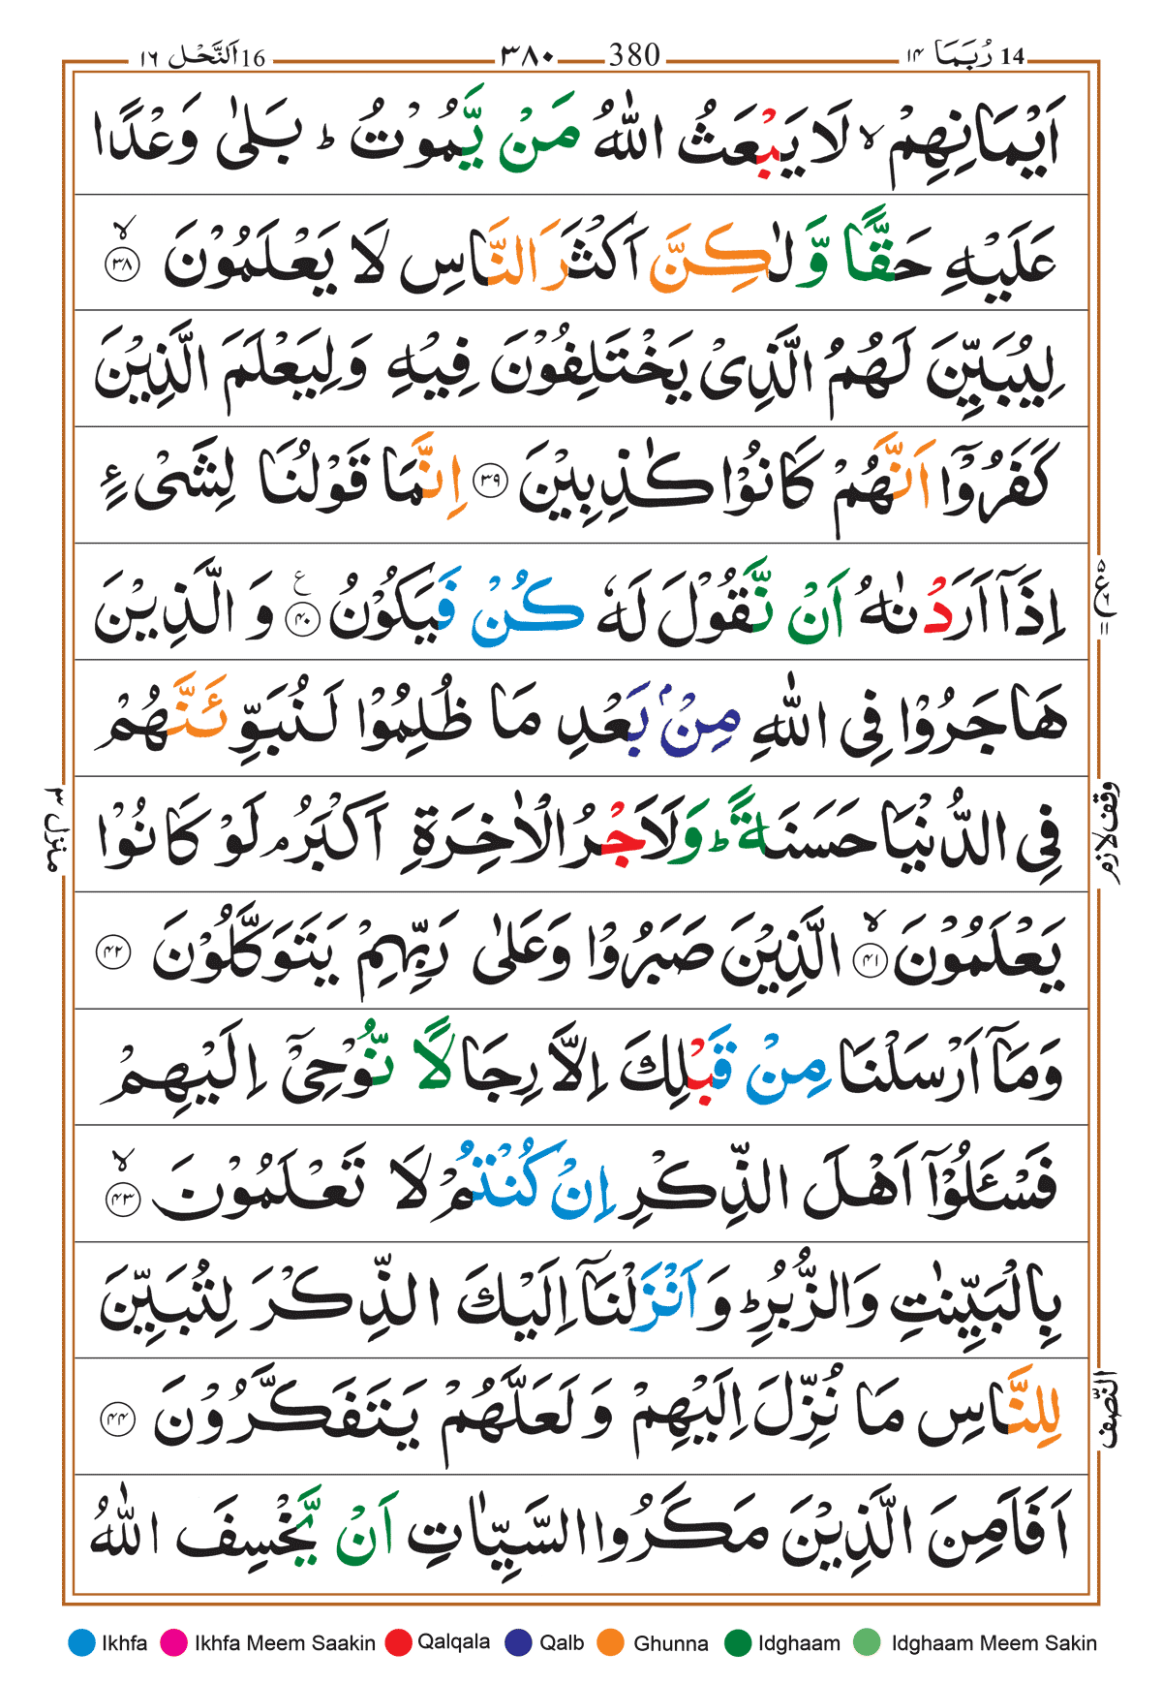 14 رُبَمَا ١٤ 380 ٣٨٠ 16 اَلنَّحْل ١٦
اَيْمَانِهِمْ ۙ لَا يَبْعَثُ اللّٰهُ مَنْ يَّمُوْتُ ؕ بَلٰى وَعْدًا
عَلَيْهِ حَقًّا وَّ لٰكِنَّ اَكْثَرَ النَّاسِ لَا يَعْلَمُوْنَ ۙ ﴿٣٨﴾
لِيُبَيِّنَ لَهُمُ الَّذِىْ يَخْتَلِفُوْنَ فِيْهِ وَلِيَعْلَمَ الَّذِيْنَ
كَفَرُوْۤا اَنَّهُمْ كَانُوْا كٰذِبِيْنَ ﴿٣٩﴾ اِنَّمَا قَوْلُنَا لِشَىْءٍ
اِذَاۤ اَرَدْنٰهُ اَنْ نَّقُوْلَ لَهٗ كُنْ فَيَكُوْنُ ﴿٤٠﴾ ع وَ الَّذِيْنَ
هَاجَرُوْا فِى اللّٰهِ مِنْۢ بَعْدِ مَا ظُلِمُوْا لَـنُبَوِّئَنَّهُمْ
فِى الدُّنْيَا حَسَنَةً ؕ وَلَاَجْرُ الْاٰخِرَةِ اَكْبَرُ ۘ لَوْ كَانُوْا
يَعْلَمُوْنَ ۙ ﴿٤١﴾ الَّذِيْنَ صَبَرُوْا وَعَلٰى رَبِّهِمْ يَتَوَكَّلُوْنَ ﴿٤٢﴾
وَمَاۤ اَرْسَلْنَا مِنْ قَبْلِكَ اِلَّا رِجَالًا نُّوْحِىْۤ اِلَيْهِمْ
فَسْـَٔلُوْۤا اَهْلَ الذِّكْرِ اِنْ كُنْتُمْ لَا تَعْلَمُوْنَ ۙ ﴿٤٣﴾
بِالْبَيِّنٰتِ وَالزُّبُرِ ؕ وَاَنْزَلْنَاۤ اِلَيْكَ الذِّكْرَ لِتُبَيِّنَ
لِلنَّاسِ مَا نُزِّلَ اِلَيْهِمْ وَلَعَلَّهُمْ يَتَفَكَّرُوْنَ ﴿٤٤﴾
اَفَاَمِنَ الَّذِيْنَ مَكَرُوا السَّيِّاٰتِ اَنْ يَّخْسِفَ اللّٰهُ
وقف لازم
النّصف
منزل ٣
Ikhfa Ikhfa Meem Saakin Qalqala Qalb Ghunna Idghaam Idghaam Meem Sakin